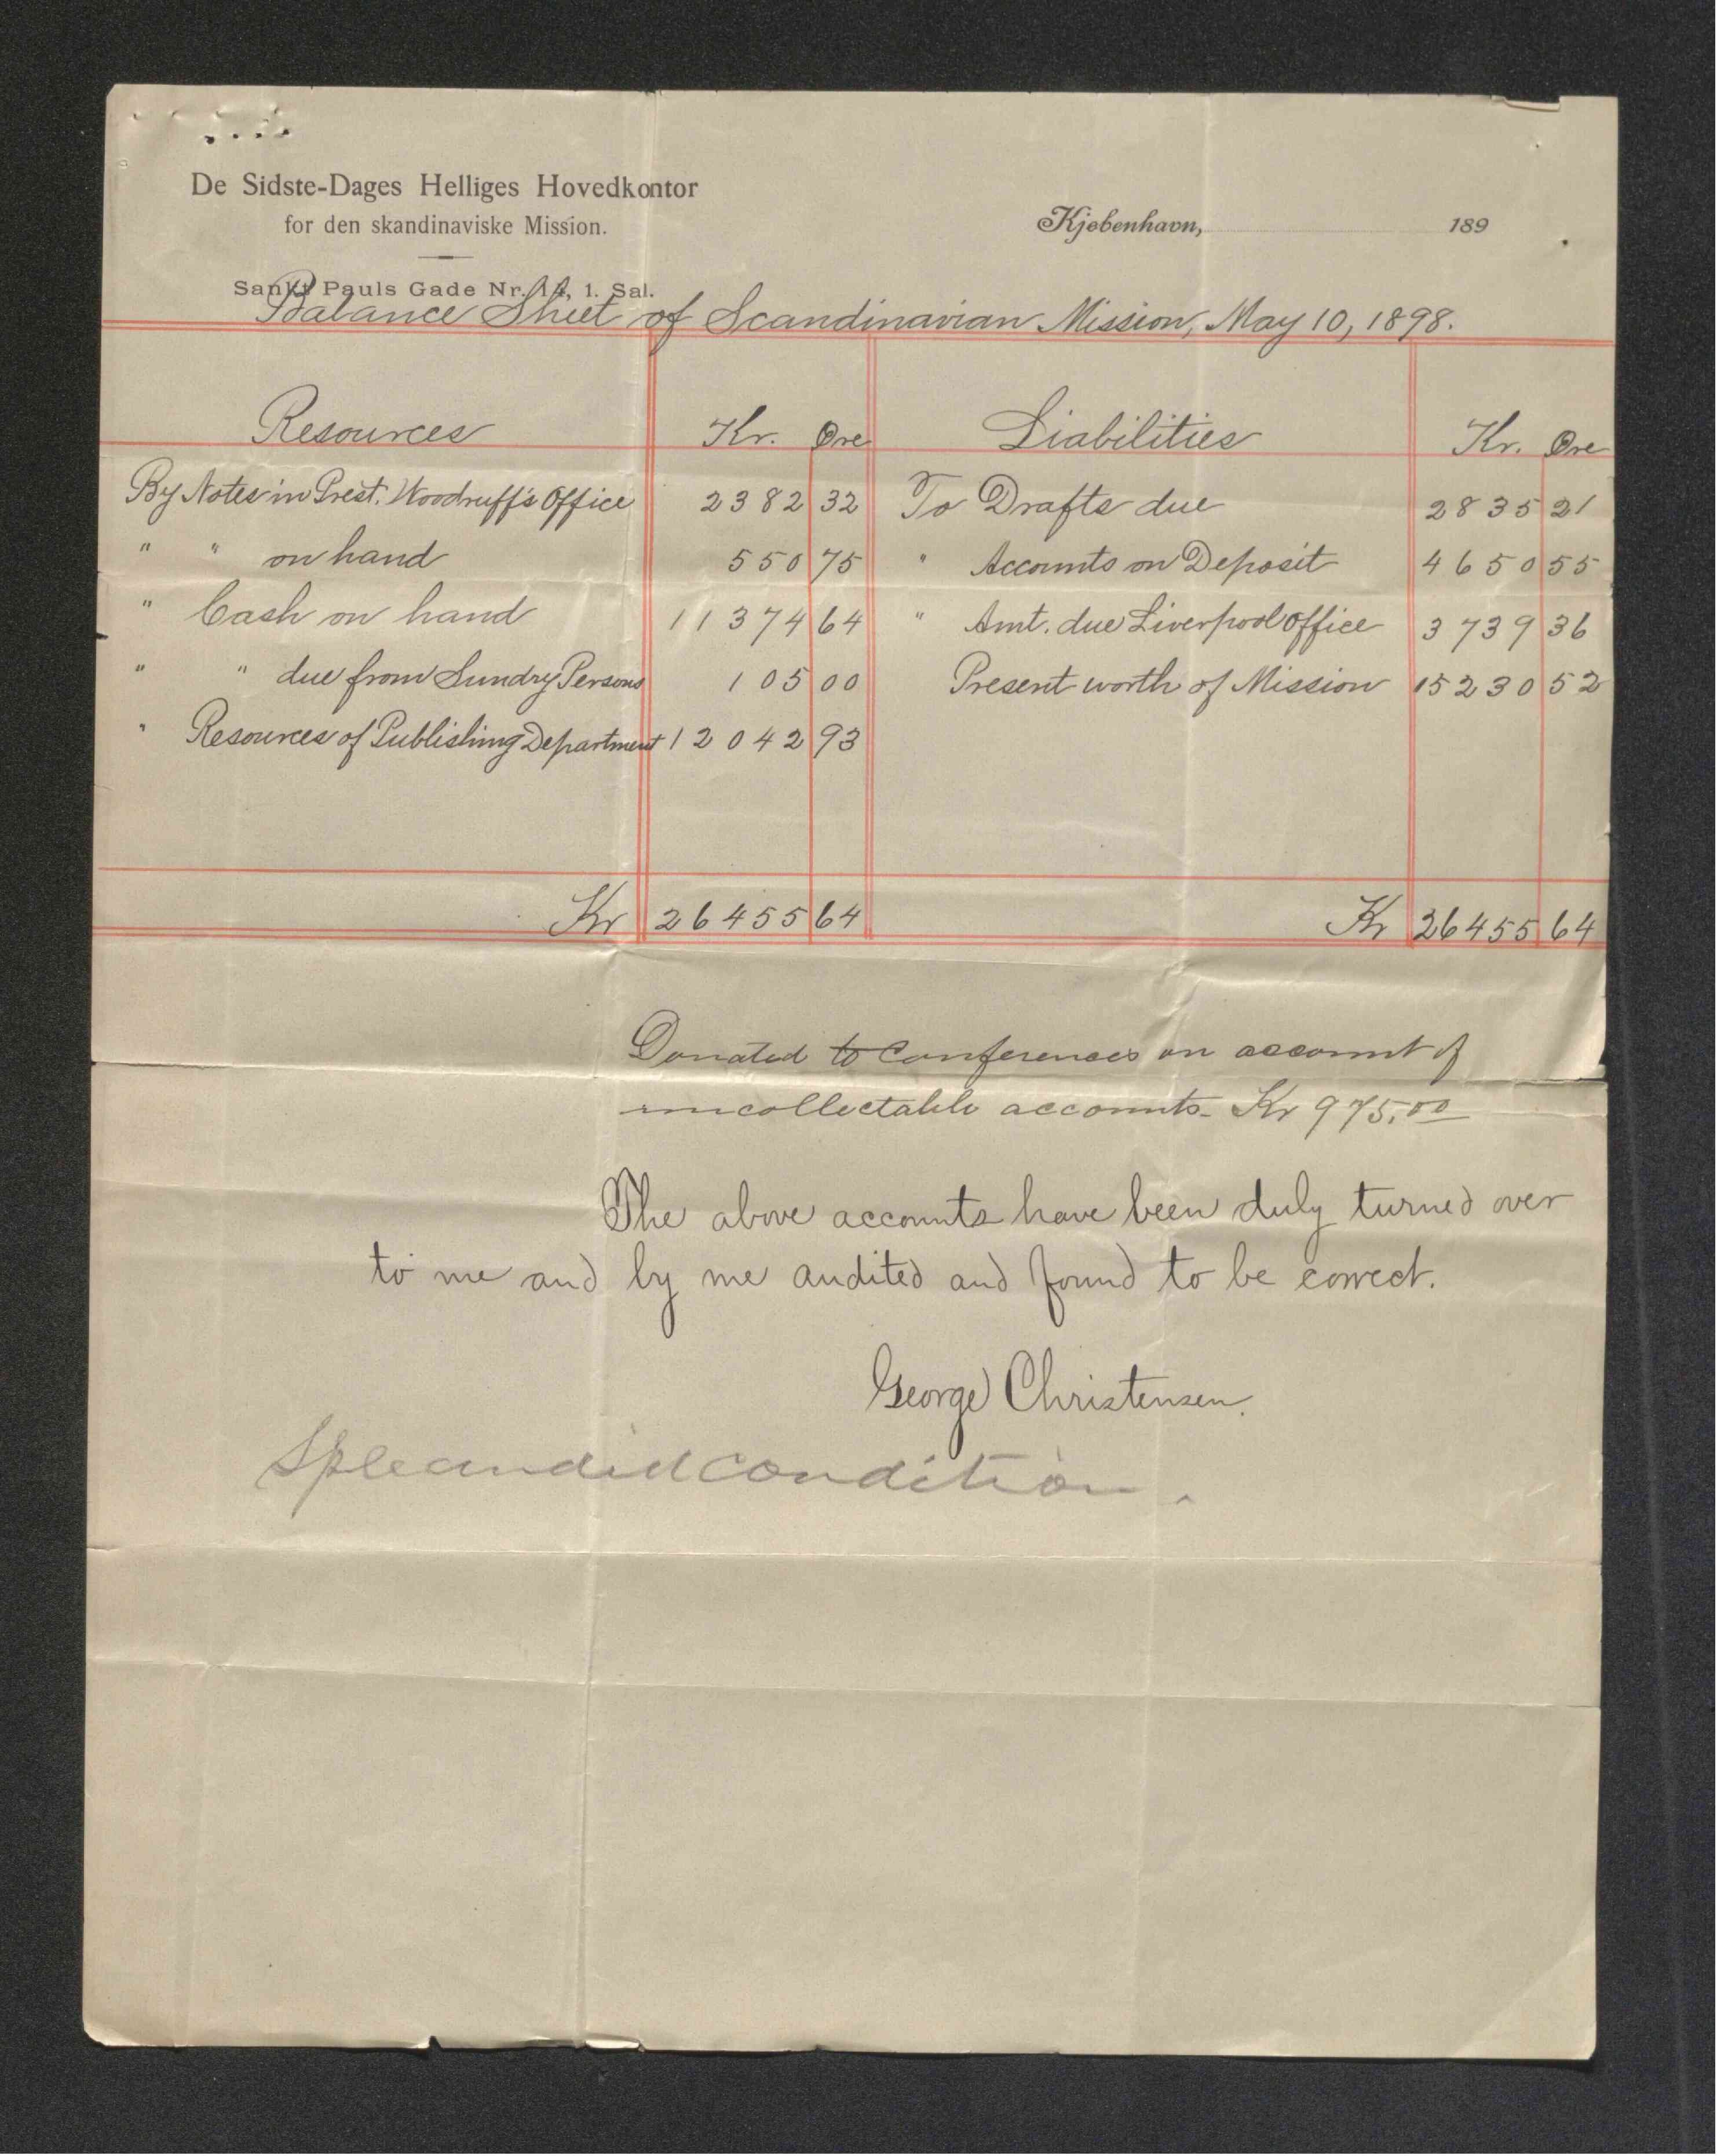 De Sidste-Dages Helliges Hovedkontor
for den skandinaviske Mission.
Kjøbenhavn, 189
Sankt Pauls Gade Nr. 14, 1. Sal.
Balance Sheet of Scandinavian Mission, May 10, 1898.
Resources Kr. Øre Liabilities Kr. Øre
By Notes in Prest. Woodruff's Office 2382 32 To Drafts due 2835 21
" " on hand 550 75 " Accounts on Deposit 4650 55
" Cash on hand 11374 64 " Amt. due Liverpool Office 3739 36
" " due from Sundry Persons 105 00 Present worth of Mission 15230 52
" Resources of Publishing Department 12042 93
Kr 26455 64 Kr 26455 64
Donated to Conferences on account of
uncollectable accounts - Kr 975.00
The above accounts have been duly turned over
to me and by me audited and found to be correct.
George Christensen.
Spleandid condition.